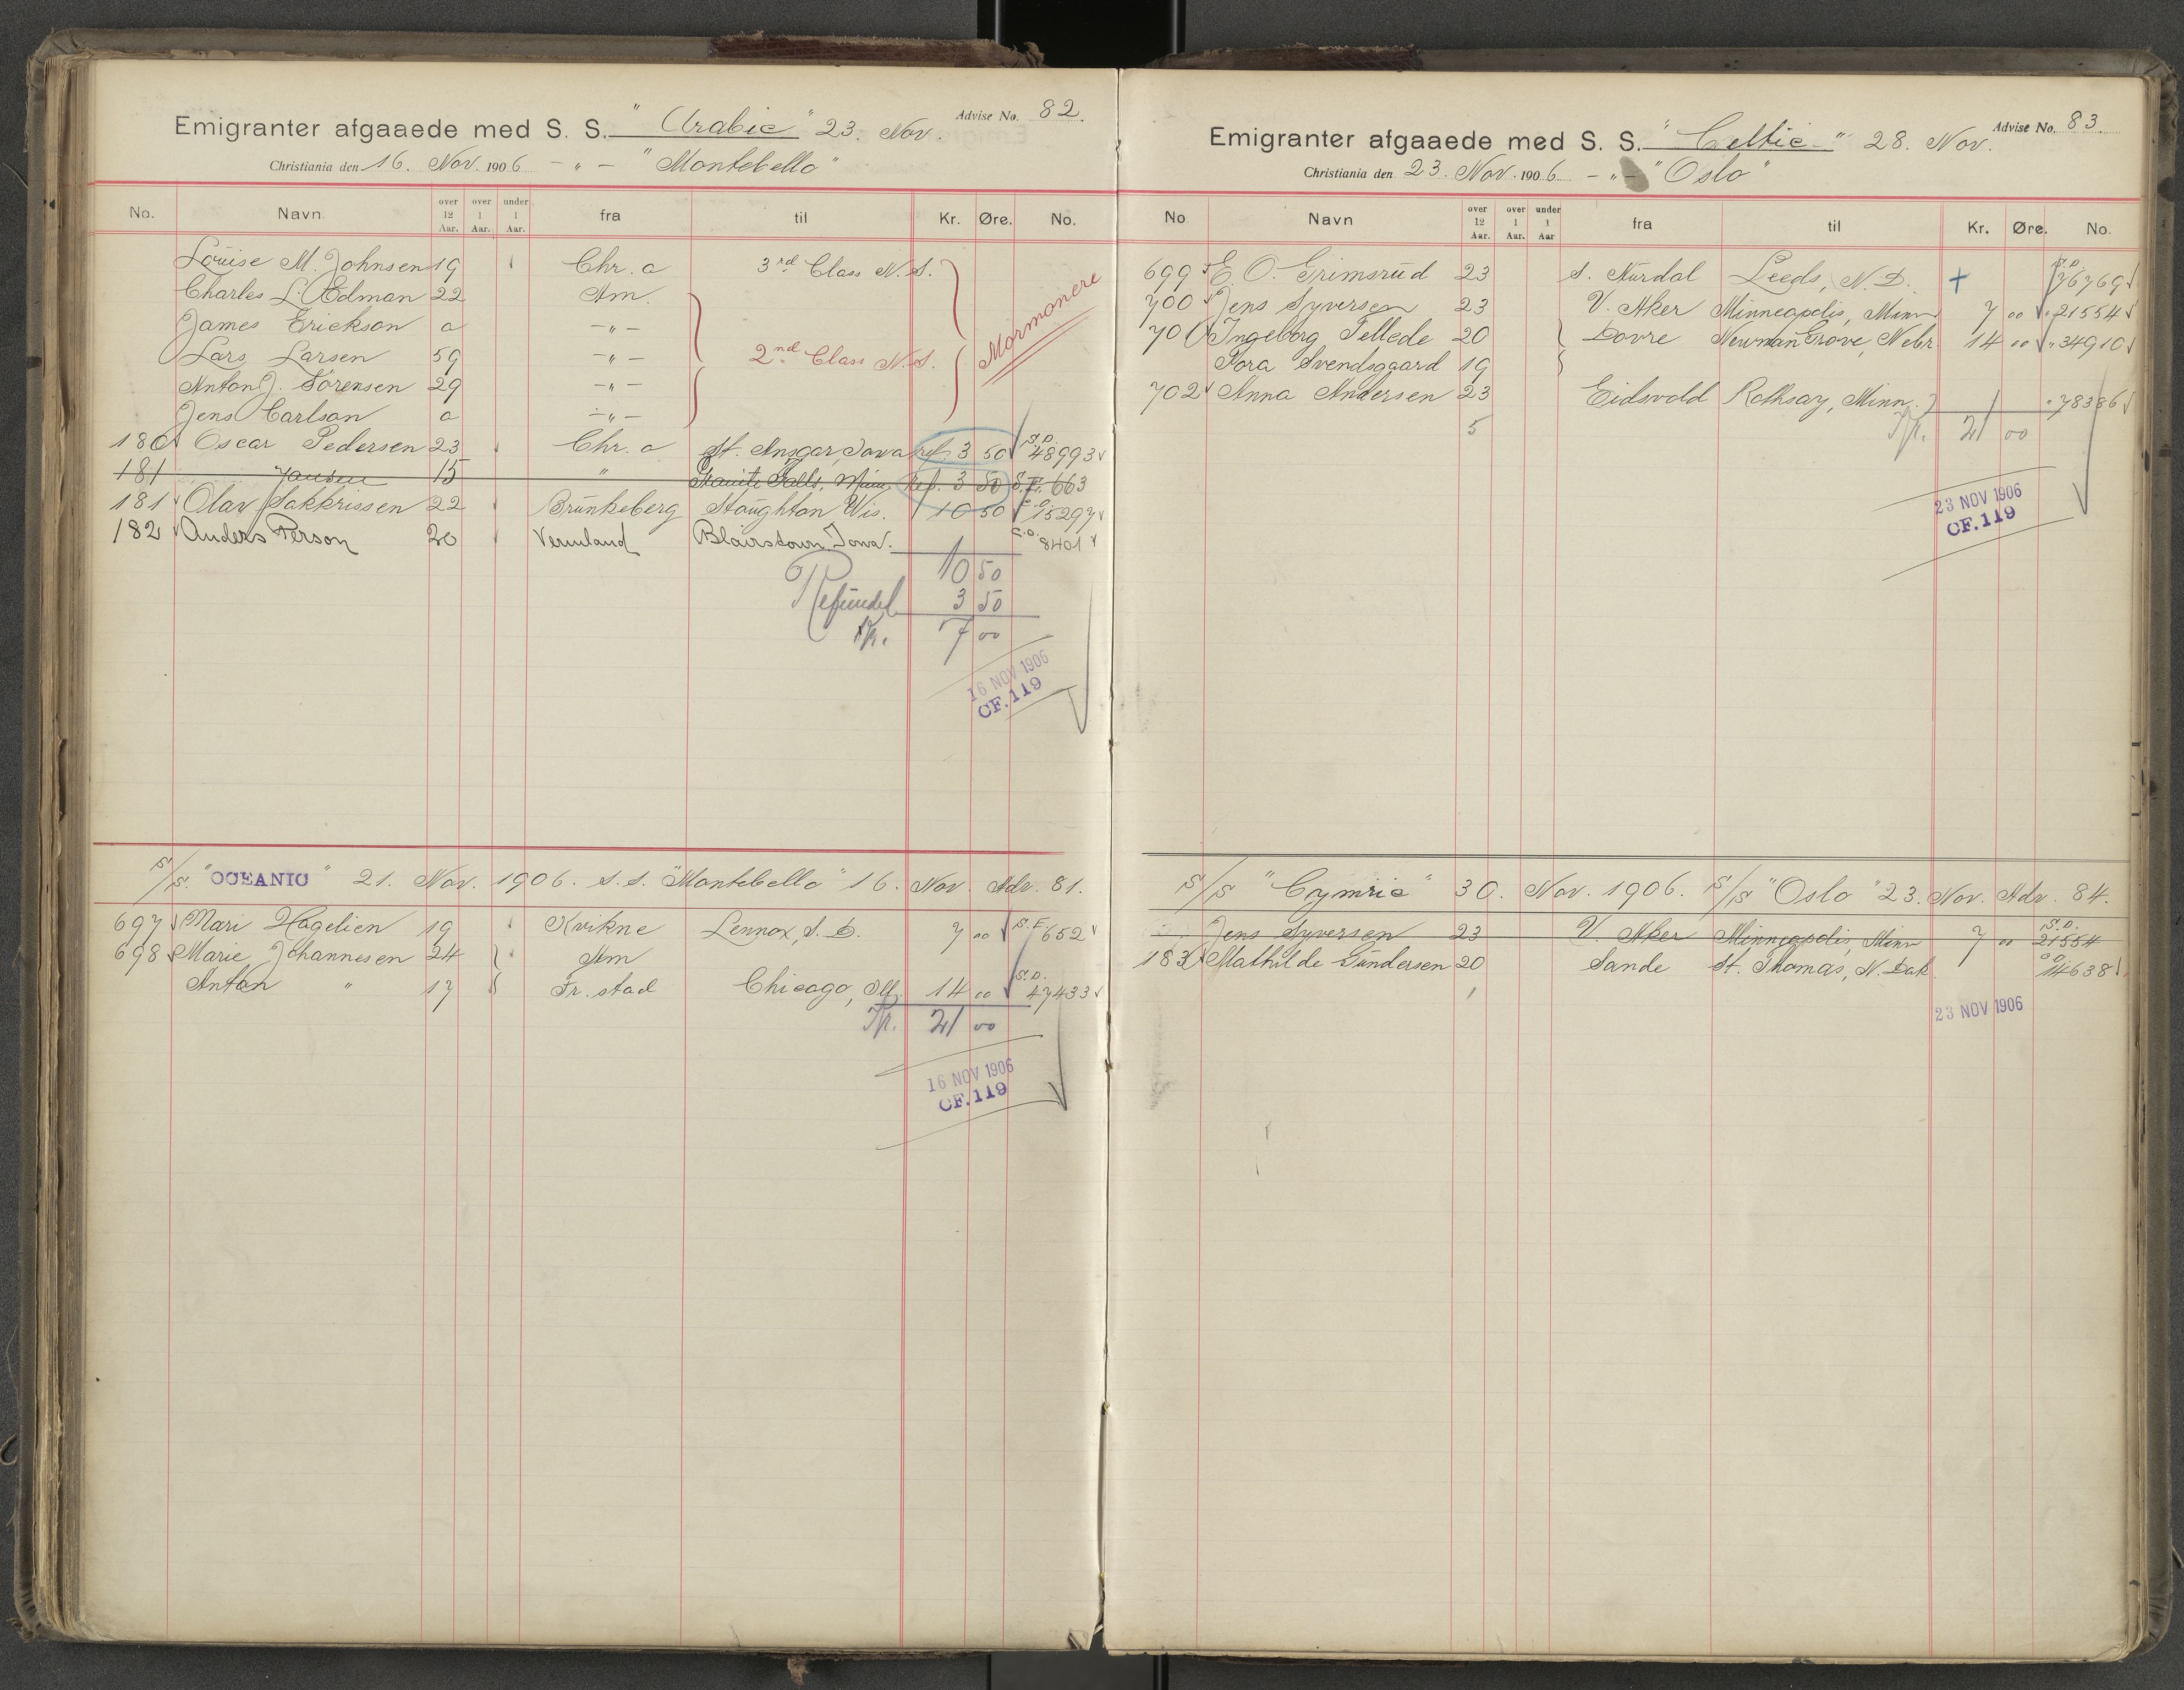 Emigranter afgaaede med S. S. "Arabic" 23. Nov. Advise No. 82.
Christiania den 16. Nov. 1906 - " - "Montebello"
No. Navn over 12 Aar. over 1 Aar. under 1 Aar. fra til Kr. Øre. No.
Louise M. Johnsen 19 Chr.a 3rd Class N.S.
Charles L. Edman 22 Am.
James Erickson a - " -
Lars Larsen 59 - " - 2nd Class N.S. Mormonere
Anton J. Sörensen 29 - " -
Jens Carlson a - " -
180 Oscar Pedersen 23 Chr.a St. Ansgar, Iowa ref. 3 50 S.D. 48993
181 Jansen 15 " Granite Falls, Minn. Ref. 3 50 S.F. 663
181 Olav Sakkrissen 22 Brunkeberg Stoughton Wis. 10 50 C.O. 15297
182 Anders Person 20 Vermland Blairstown Iowa. C.O. 8401
10 50
Refunded 3 50
Kr. 7 00
16 NOV 1906
CF. 119
S/S. "OCEANIC" 21. Nov. 1906. S.S. "Montebello" 16. Nov. Adv. 81.
697 Mari Hagelien 19 Kvikne Lennox, S.D. 7 00 S.F. 652
698 Marie Johannesen 24 Am
Anton " 17 Fr.stad Chicago, Ill. 14 00 S.D. 47433
Kr. 21 00
16 NOV 1906
CF. 119
Emigranter afgaaede med S. S. "Celtic" 28. Nov. Advise No. 83.
Christiania den 23. Nov. 1906 - " - "Oslo"
No. Navn over 12 Aar. over 1 Aar. under 1 Aar fra til Kr. Øre. No.
699 E. O. Grimsrud 23 S. Aurdal Leeds, N.D. + S.D. 76769
700 Jens Syversen 23 V. Aker Minneapolis, Minn 7 00 " 21554
701 Ingeborg Tellede 20 Dovre Newman Grove, Nebr. 14 00 " 34910
Tora Svendsgaard 19
702 Anna Andersen 23 Eidsvold Rothsay, Minn. " 78386
5 Kr. 21 00
23 NOV 1906
CF. 119
S/S "Cymric" 30. Nov. 1906. S/S "Oslo" 23. Nov. Adv. 84.
Jens Syversen 23 V. Aker Minneapolis, Minn 7 00 S.D. 21554
183 Mathilde Gundersen 20 Sande St. Thomas, N. Dak. C.O. 14638
1
23 NOV 1906